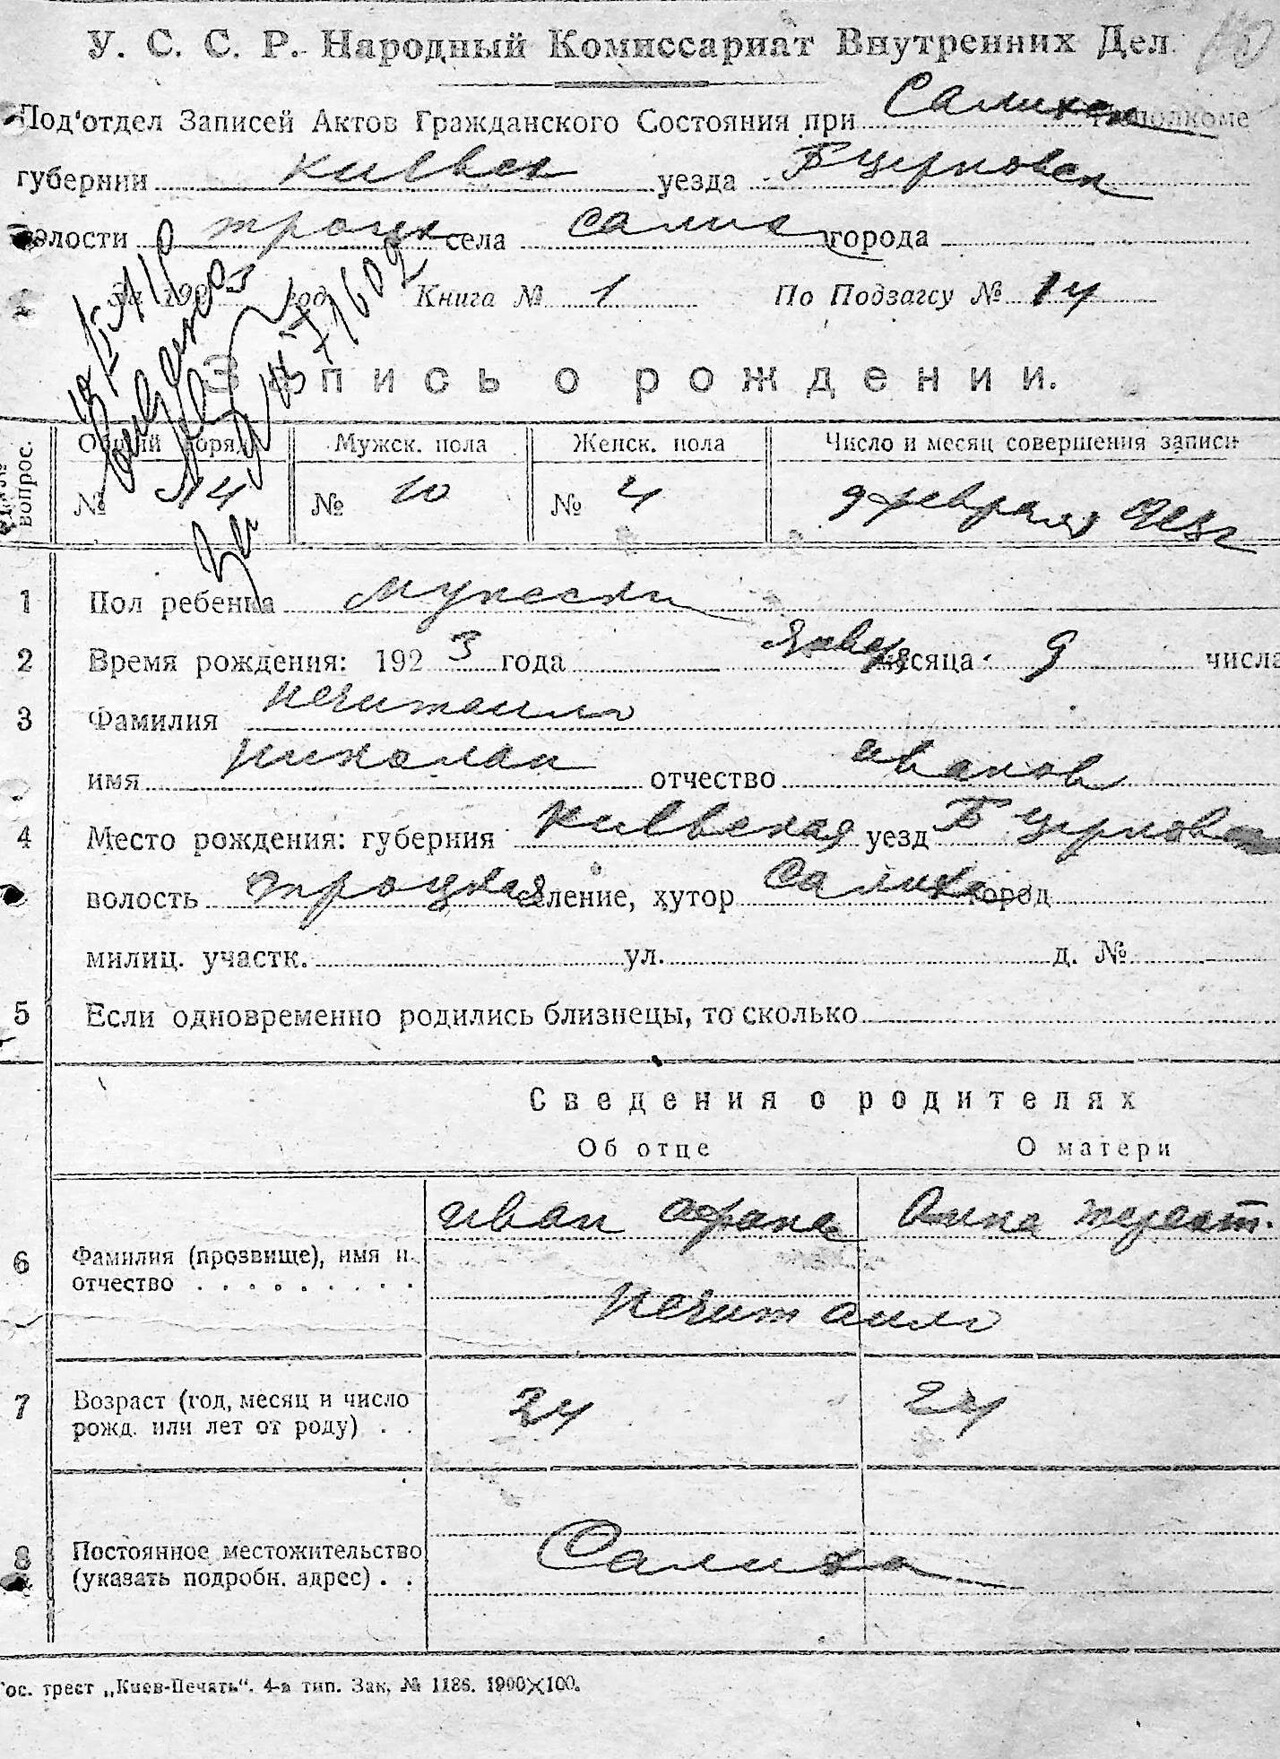 У. С. С. Р. Народный Комиссариат Внутренних Дел
Под'отдел Записей Актов Гражданского Состояния при Салиха
губернии Киевск уезда Бцерковск
волости троцк села Салих города
За 192 год Книга № 1 По Подзагсу № 14
Запись о рождении.
вопрос. Общий поряд. Мужск. пола Женск. пола Число и месяц совершения записи
№ 14 № 10 № 4 9 февраля 1923г
1 Пол ребенка мужеск
2 Время рождения: 1923 года января месяца 9 числа
3 Фамилия Нечитаило
имя Николаи отчество иванов
4 Место рождения: губерния Киевская уезд Бцерковск
волость троцкая селение, хутор Салиха город
милиц. участк. ул. д. №
5 Если одновременно родились близнецы, то сколько
Сведения о родителях
Об отце О матери
6 Фамилия (прозвище), имя и отчество иван афанас Анна
Нечитаило
7 Возраст (год, месяц и число рожд. или лет от роду) 24 24
8 Постоянное местожительство (указать подробн. адрес) Салиха
Гос. трест „Киев-Печать“. 4-я тип. Зак. № 1186. 1900×100.